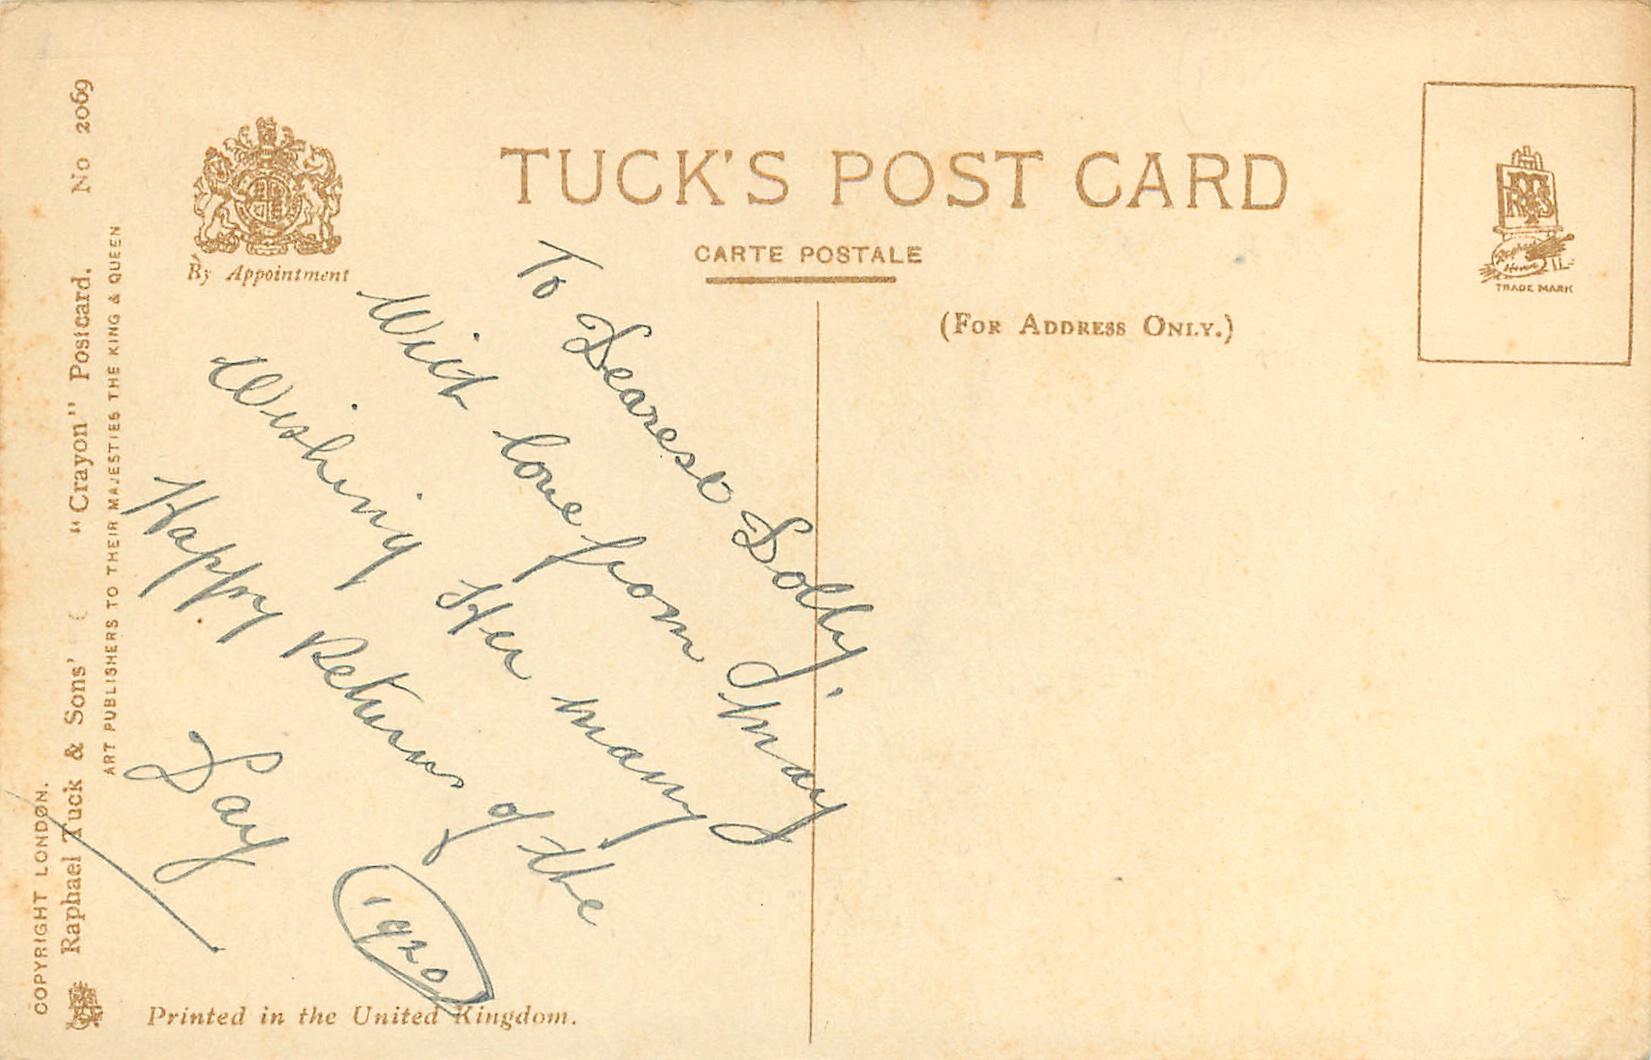 TUCK'S POST CARD
CARTE POSTALE
(FOR ADDRESS ONLY.)
By Appointment
TRADE MARK
COPYRIGHT LONDON.
Raphael Tuck & Sons' "Crayon" Postcard. No 2069
ART PUBLISHERS TO THEIR MAJESTIES THE KING & QUEEN
To Dearest Dolly,
With love from May
Wishing Her many
Happy Returns of the
Day
1920
Printed in the United Kingdom.